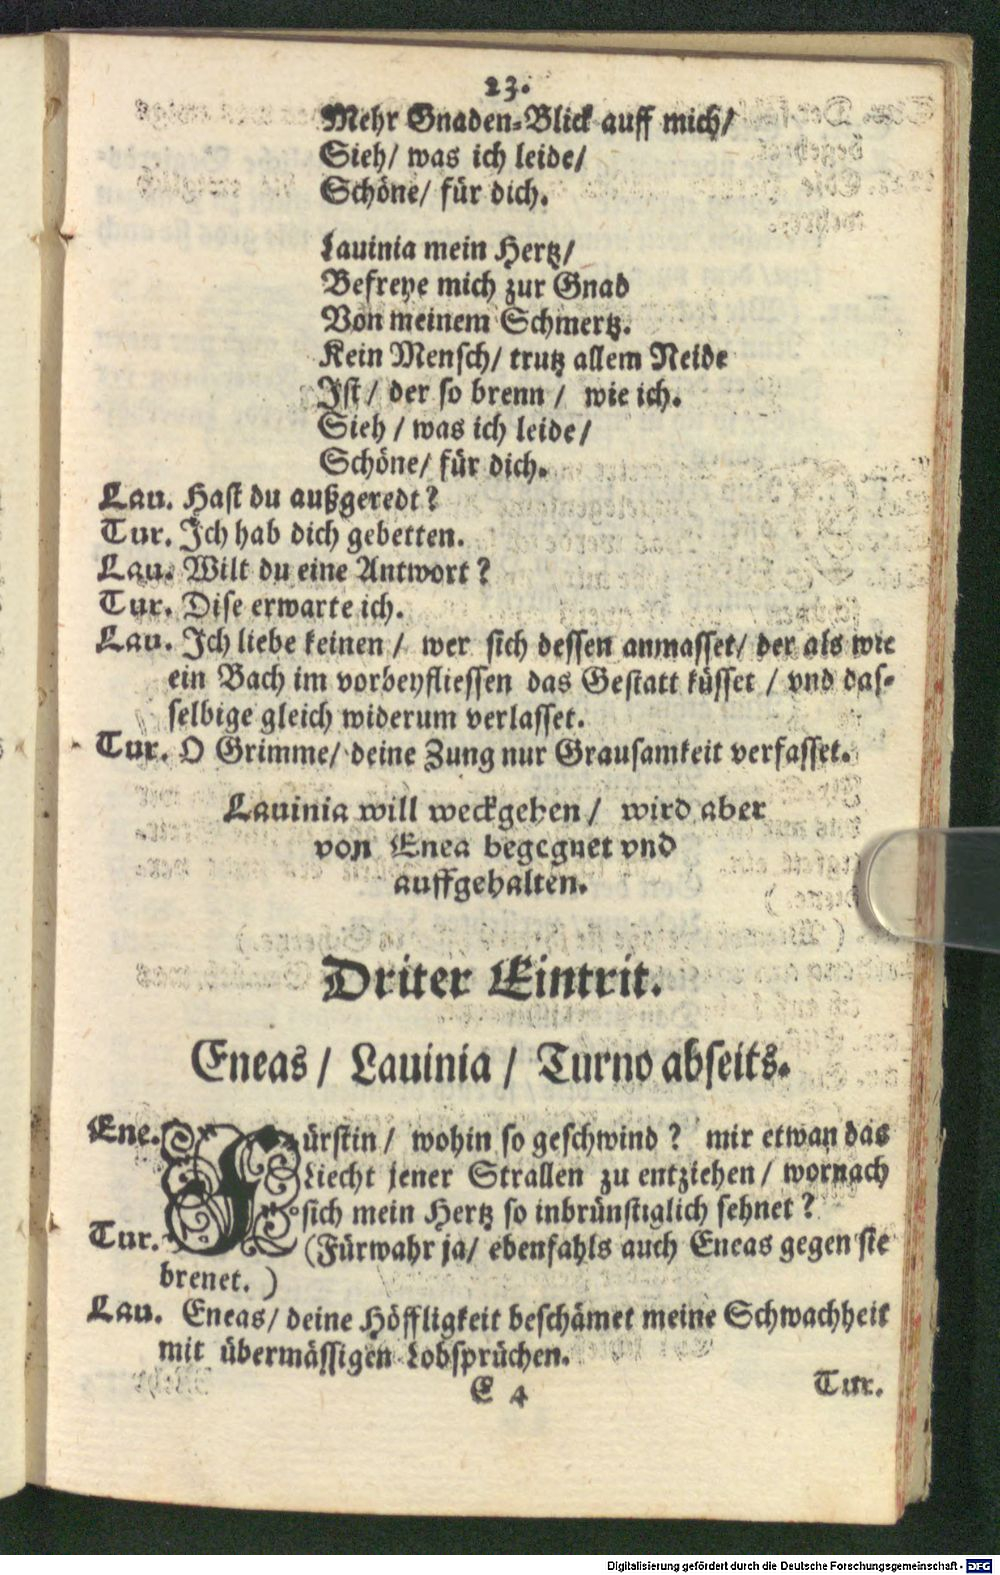 23.
Mehr Gnaden-Blick auff mich/
Sieh/ was ich leide/
Schöne/ für dich.
Lauinia mein Hertz/
Befreye mich zur Gnad
Von meinem Schmertz.
Kein Mensch/ trutz allem Neide
Ist/ der so brenn/ wie ich.
Sieh/ was ich leide/
Schöne/ für dich.
Lau. Hast du außgeredt?
Tur. Ich hab dich gebetten.
Lau. Wilt du eine Antwort?
Tur. Dise erwarte ich.
Lau. Ich liebe keinen/ wer sich dessen anmasset/ der als wie
ein Bach im vorbeyfliessen das Gestatt küsset/ vnd das-
selbige gleich widerum verlasset.
Tur. O Grimme/ deine Zung nur Grausamkeit verfasset.
Lauinia will weckgehen/ wird aber
von Enea begegnet vnd
auffgehalten.
Driter Eintrit.
Eneas/ Lauinia/ Turno abseits.
Ene. Fürstin/ wohin so geschwind? mir etwan das
Liecht jener Strallen zu entziehen/ wornach
sich mein Hertz so inbrünstiglich sehnet?
Tur. (Fürwahr ja/ ebenfahls auch Eneas gegen sie
brenet.)
Lau. Eneas/ deine Höffligkeit beschämet meine Schwachheit
mit übermässigen Lobsprüchen.
E 4 Tur.
Digitalisierung gefördert durch die Deutsche Forschungsgemeinschaft - DFG